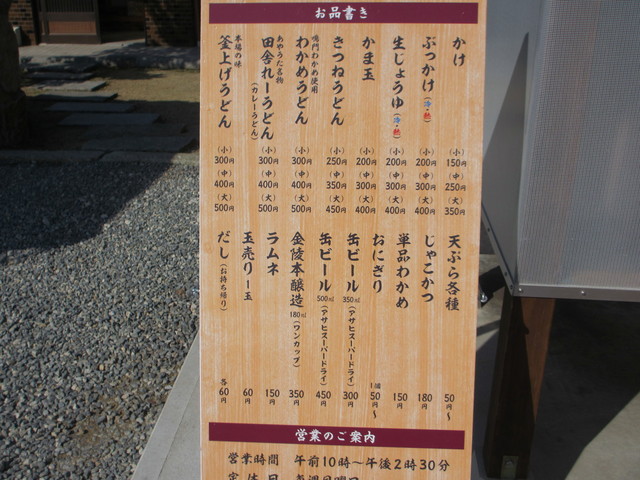 お品書き
かけ
(小)150円
(中)250円
(大)350円
ぶっかけ(冷・熱)
(小)200円
(中)300円
(大)400円
生じょうゆ(冷・熱)
(小)200円
(中)300円
(大)400円
かま玉
(小)200円
(中)300円
(大)400円
きつねうどん
(小)250円
(中)350円
(大)450円
鳴門わかめ使用
わかめうどん
(小)300円
(中)400円
(大)500円
あやうた名物
田舎れーうどん
(カレーうどん)
(小)300円
(中)400円
(大)500円
本場の味
釜上げうどん
(小)300円
(中)400円
(大)500円
天ぷら各種 50円〜
じゃこかつ 180円
単品わかめ 150円
おにぎり 1個 50円〜
缶ビール 350ml (アサヒスーパードライ) 300円
缶ビール 500ml (アサヒスーパードライ) 450円
金陵本醸造 180ml (ワンカップ) 350円
ラムネ 150円
玉売り一玉 60円
だし(お持ち帰り) 各60円
営業のご案内
営業時間 午前10時〜午後2時30分